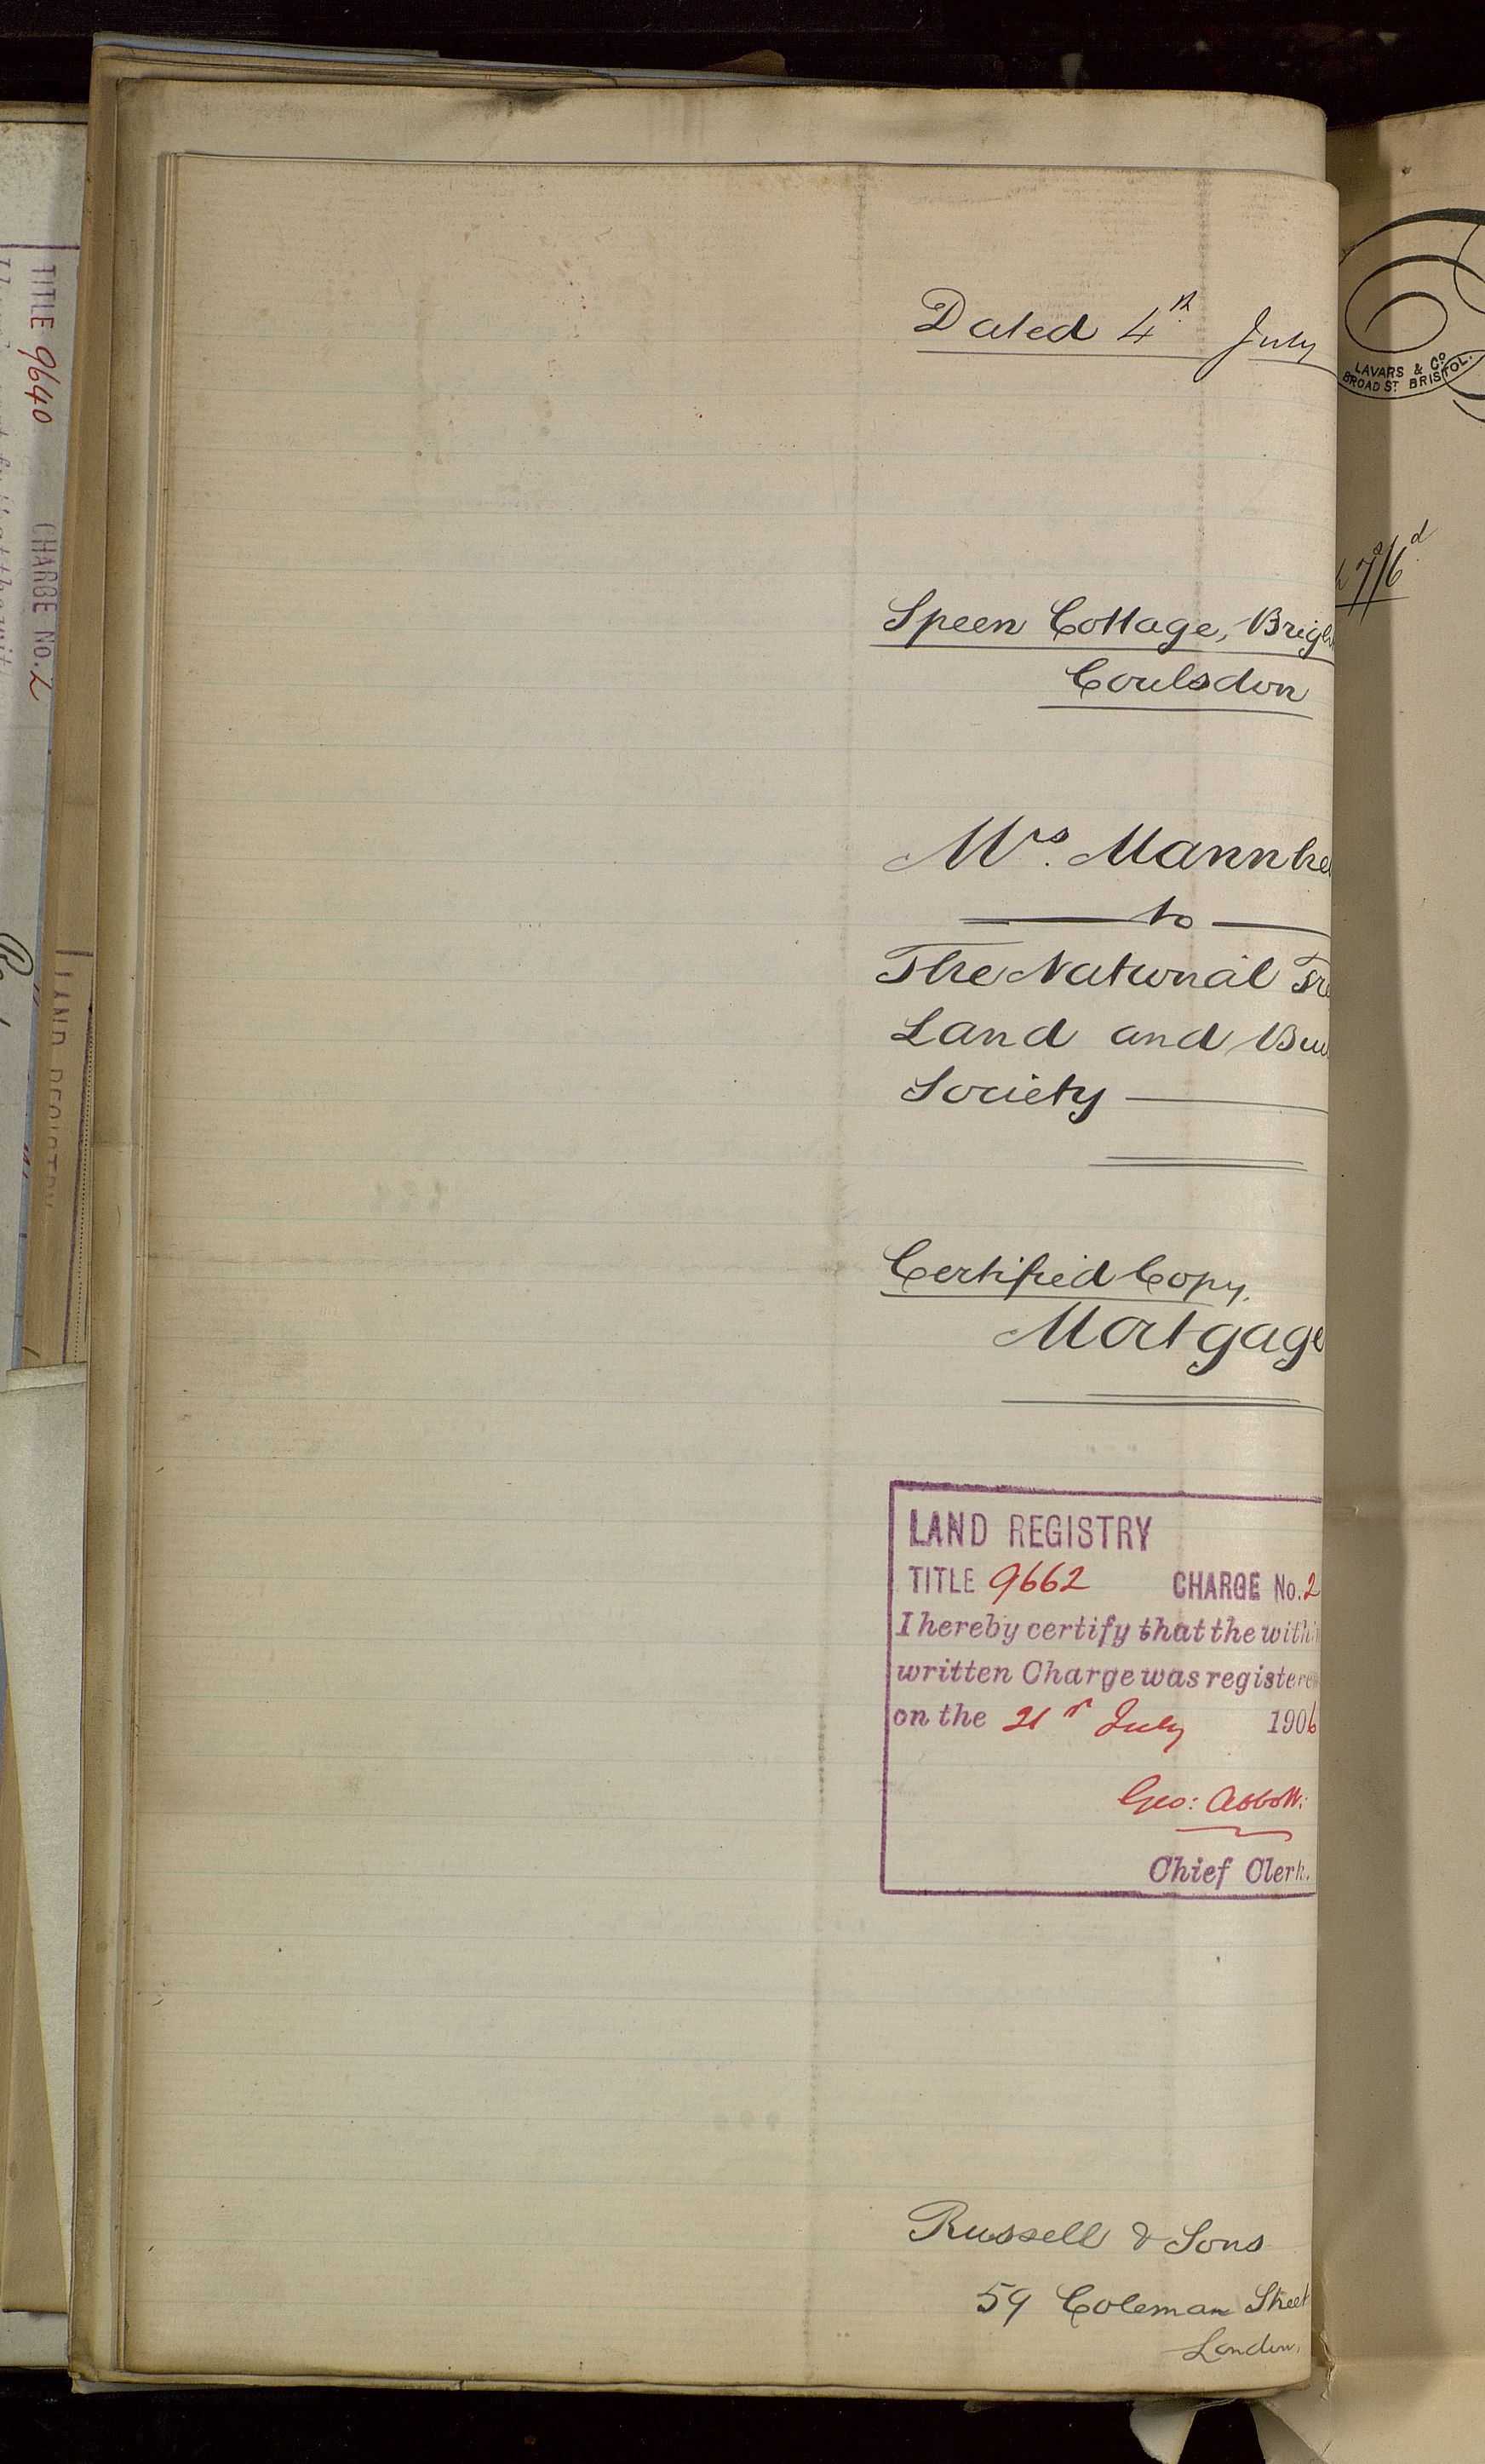 Dated 4th July
Speen Cottage, Brigh
Coulsdon
Mrs. Mannhe
to
The National Fre
Land and Bui
Society
Certified Copy.
Mortgage
LAND REGISTRY
TITLE 9662 CHARGE No. 2
I hereby certify that the within
written Charge was registere
on the 21st July 1906
Geo: Abbott:
Chief Clerk.
Russell & Sons
59 Coleman Street
London.
TITLE 9640 CHARGE No. 2
LAND REGISTRY
LAVARS & Co.
BROAD ST. BRISTOL.
7s/6d